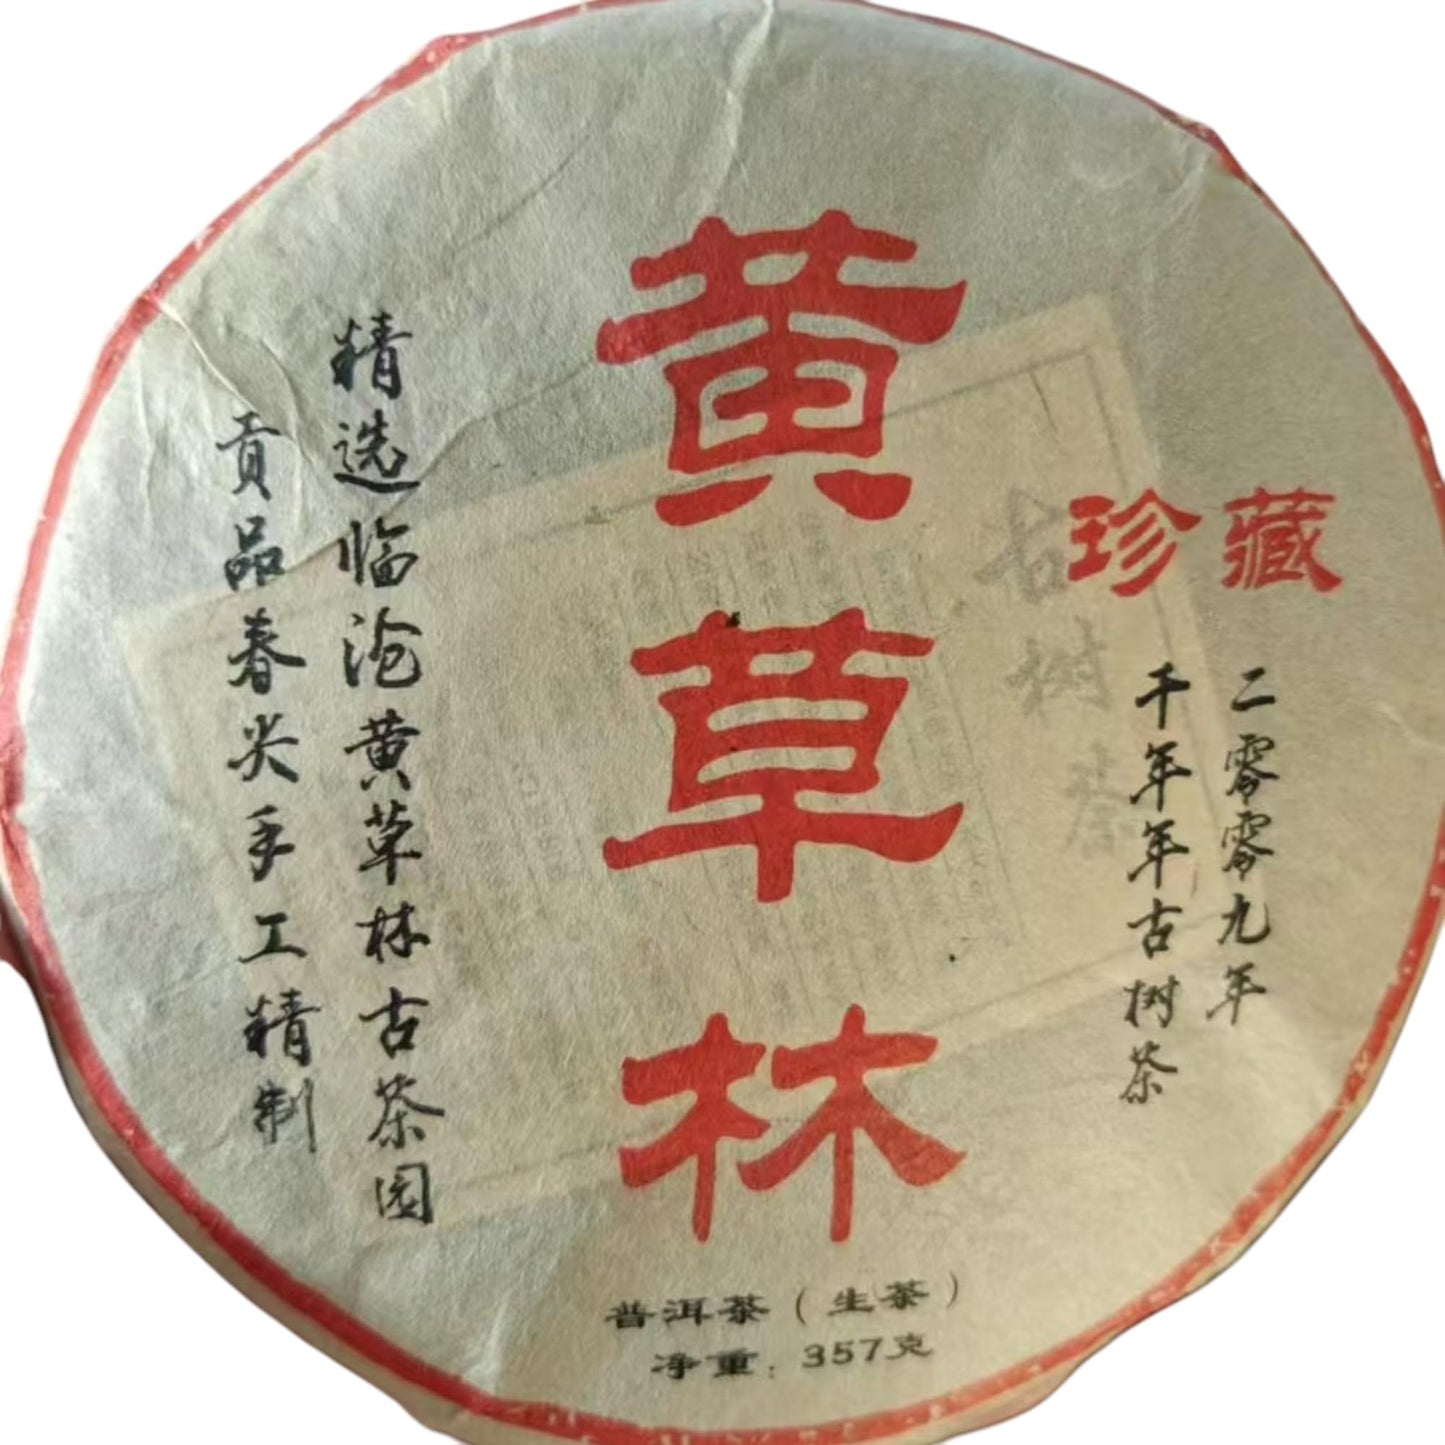 珍藏
二零零九年
千年年古树茶
黄草林
精选临沧黄草林古茶园
贡品春尖手工精制
古树茶
普洱茶（生茶）
净重：357克